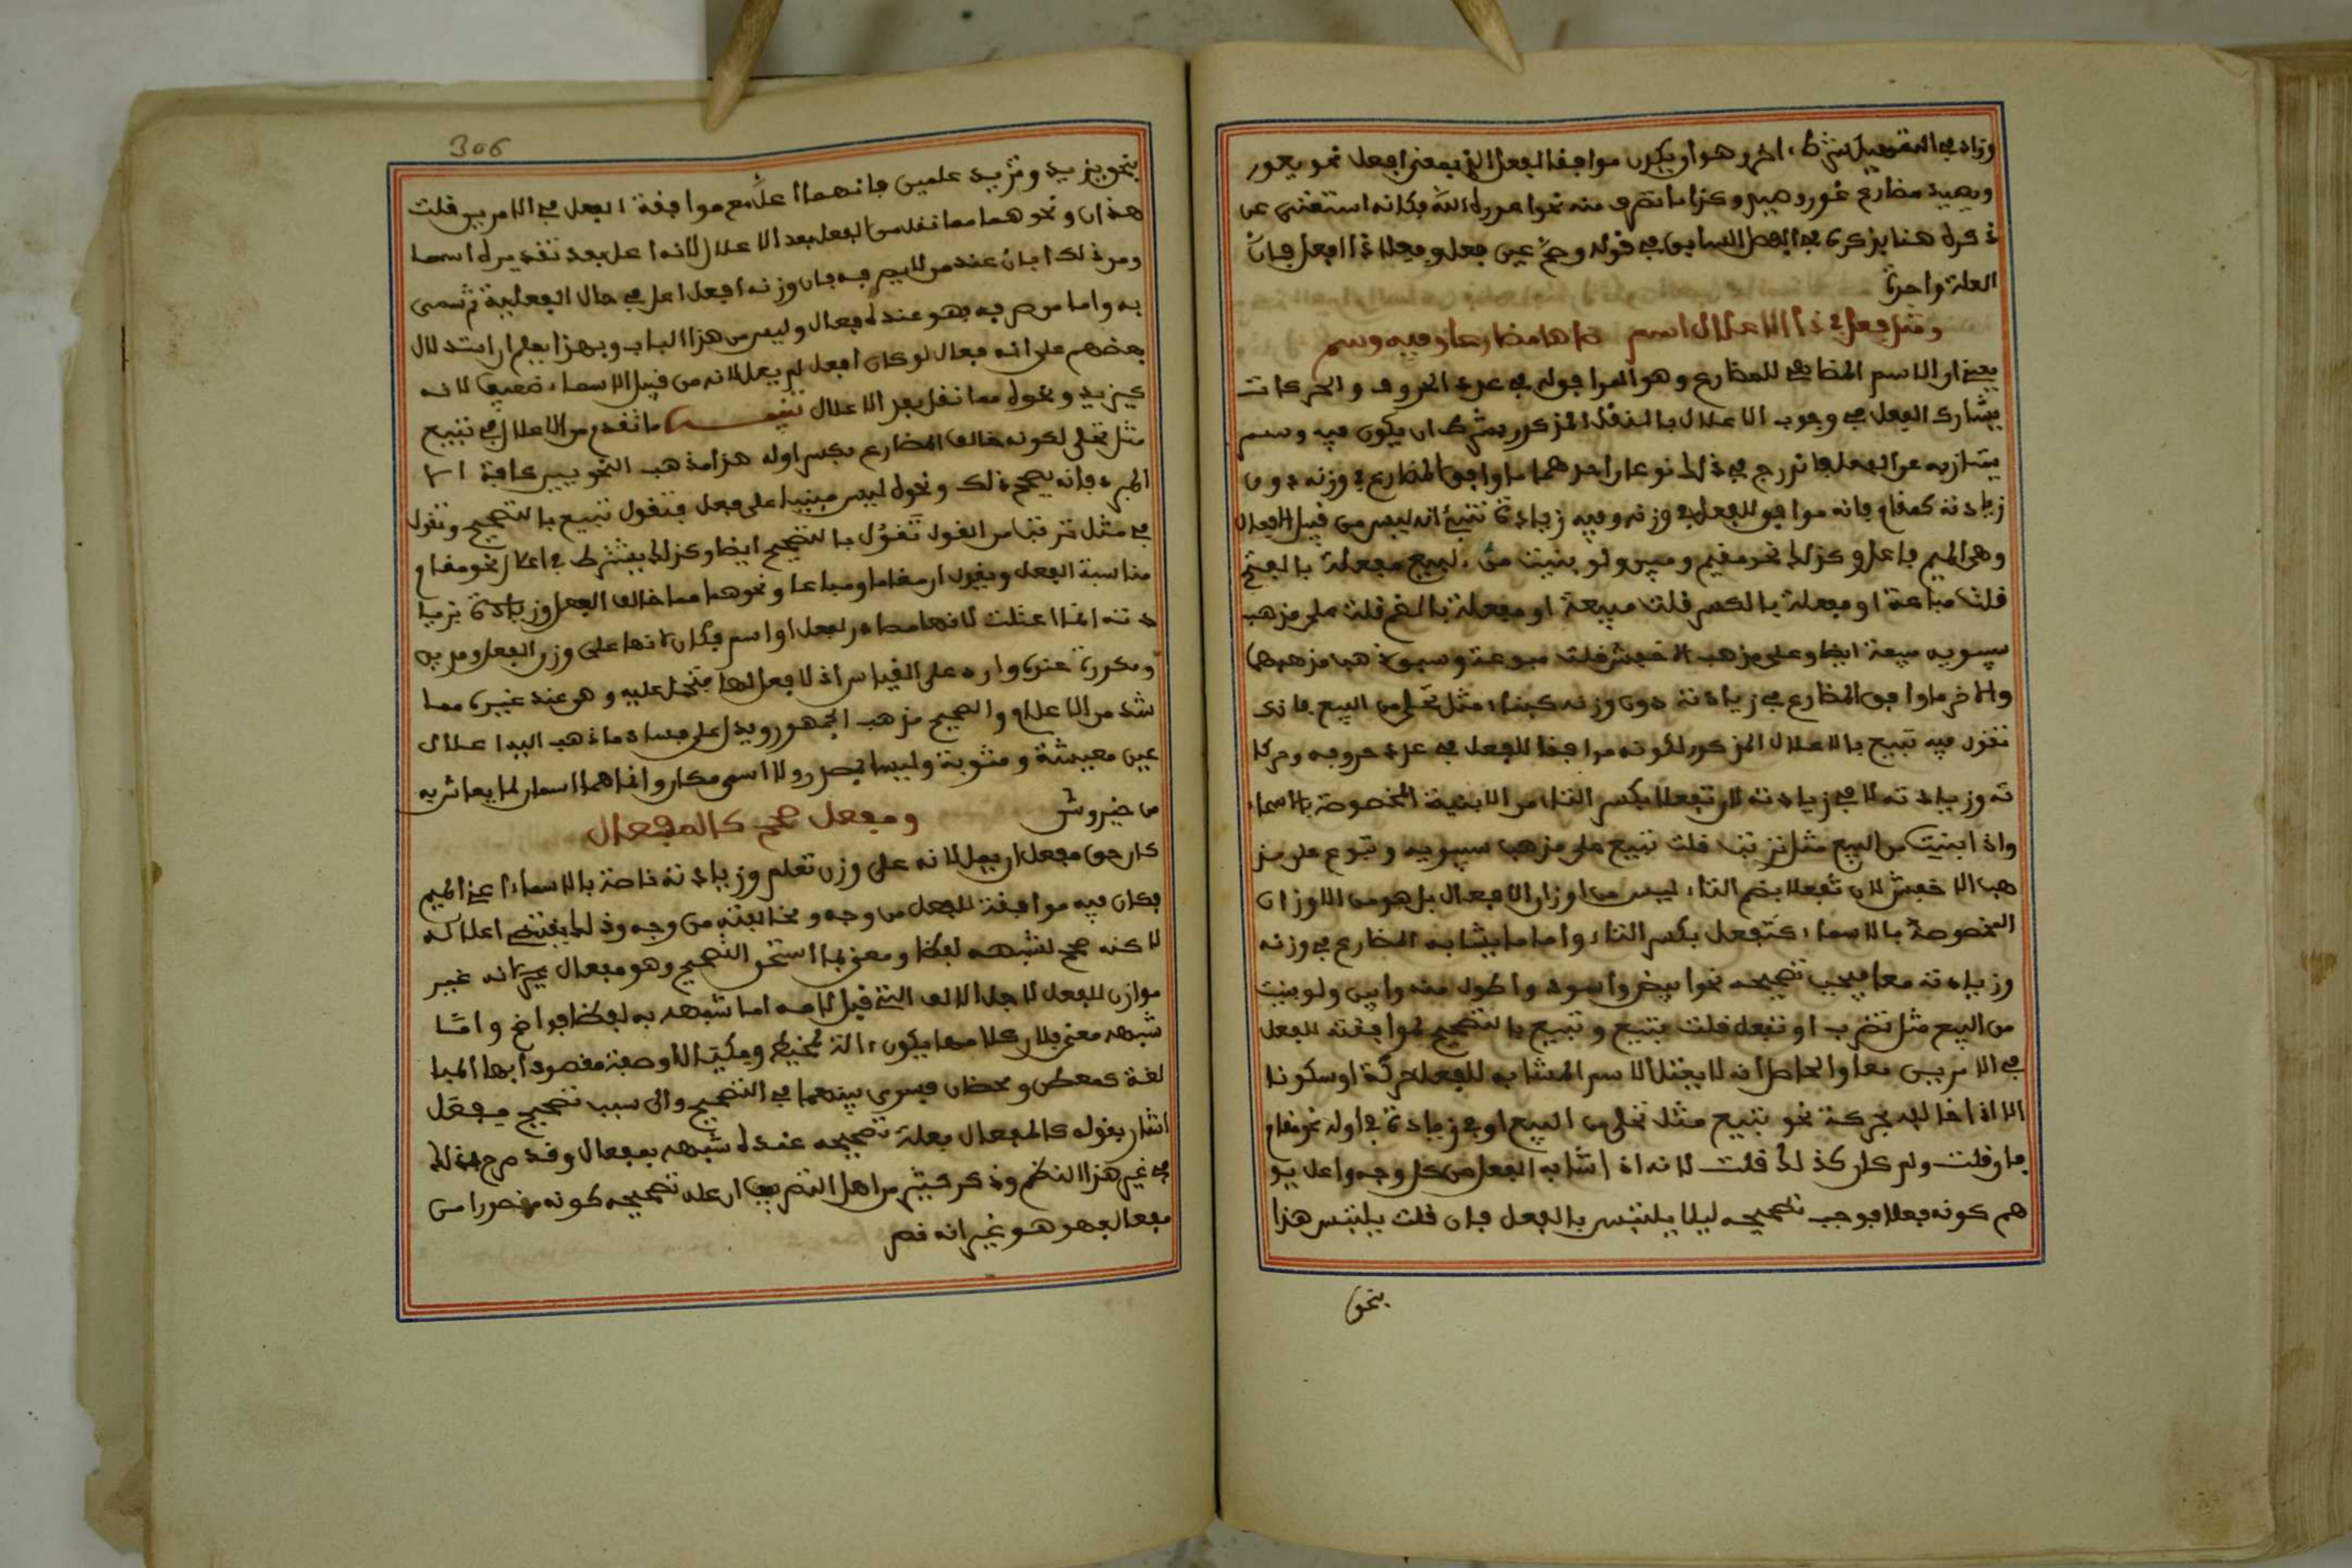 وزاد في التسهيل شرطا اخر وهو ان يكون موافقا لفعل الذي بمعنى افعل نحو يعور
ويصيد مضارع عور وصيد وكذا ما تصرف منه نحو اعوره الله وكانه استغنى عن
ذكره هنا بذكره في الفصل السابق في قوله وصح عين فعل وفعلا ذا افعل فان
العلة واحدة
ومثل فعل في ذا الاعلال اسم ضاها مضارعا وفيه وسم
يعني ان الاسم المضاهي للمضارع وهو الموافق له في عدد الحروف والحركات
يشارك الفعل في وجوب الاعلال بالنقل المذكور بشرط ان يكون فيه وسم
يمتاز به عن الفعل فاندرج في ذلك نوعان احدهما ما وافق المضارع في وزنه دون
زيادته كمقام فانه موافق للفعل في وزنه وفيه زيادة تنبئ انه ليس من قبيل الافعال
وهي الميم فاعل وكذلك نحو مقيم ومبين ولو بنيت من البيع مفعلة بالفتح
قلت مباعة او مفعلة بالكسر قلت مبيعة او مفعلة بالضم قلت على مذهب
سيبويه مبيعة ايضا وعلى مذهب الاخفش قلت مبوعة وسبق ذهب مذهبهما
والاخر ما وافق المضارع في زيادته دون وزنه كبناء مثل تحلئ من البيع فانك
تقول فيه تبيع بالاعلال المذكور لكونه موافقا للفعل في عدد حروفه وحركا
ته وزيادته لا في زيادته لان تفعلا بكسر التاء من الابنية المخصوصة بالاسماء
واذا بنيت من البيع مثل ترتب قلت تبيع على مذهب سيبويه وتبوع على مذ
هب الاخفش لان تفعلا بضم التاء ليس من اوزان الافعال بل هو من الاوزان
المخصوصة بالاسماء كتفعل بكسر التاء واما ما يشابه المضارع في وزنه
وزيادته معا فيجب تصحيحه نحو ابيض واسود واطول منه وابين ولو بنيت
من البيع مثل تضرب او تفعل قلت تبيع وتبيع بالتصحيح لموافقته للفعل
في الامرين معا والحاصل انه لا يعتل الاسم المشابه للفعل حركة او سكونا
الا اذا خالفه بحركة نحو تبيع مثل تحلئ من البيع او بزيادة في اوله نحو مقام
فان قلت ولم كان كذلك قلت لانه اذا شابه الفعل من كل وجه واعل يتو
هم كونه فعلا فوجب تصحيحه ليلا يلتبس بالفعل فان قلت يلتبس هذا
بنحو
306
بنحو يزيد وتزيد علمين فانهما اعلا مع موافقة الفعل في الامرين قلت
هذان ونحوهما مما نقل من الفعل بعد الاعلال لانه اعل بعد تقديره اسما
ومن ذلك ابان عند من لا يصرفه فان وزنه افعل اعل في حال الفعلية ثم سمي
به واما من صرفه فهو عنده فعال وليس من هذا الباب وبهذا يعلم ان استدلال
بعضهم على انه فعال لو كان افعل لم يعل لانه من قبيل الاسماء ضعيف لانه
كيزيد ونحوه مما نقل بعد الاعلال تنبيه ما تقدم من الاعلال في تبيع
مثل تحلئ لكونه خالف المضارع بكسر اوله هذا مذهب النحويين كافة الا
المبرد فانه يصحح ذلك ونحوه ليس مبنيا على فعل فتقول تبيع بالتصحيح وتقول
في مثل ترتب من القول تقول بالتصحيح ايضا وكذلك يشترط في اعلال نحو مقام
مناسبة الفعل ويقول ان مقاما ومباعا ونحوهما مما خالف الفعل وزيادة يزيا
دته انما اعتلت لانها مصادر لفعل او اسم مكان لانها على وزن الفعل ومريم
ومكوزة عنده وارد على القياس اذ لا فعل لها فتحمل عليه وهو عند غيره مما
شذ من الاعلام والصحيح مذهب الجمهور ويدل على فساد ما ذهب اليه اعلال
عين معيشة ومثوبة وليسا بمصدر ولا اسم مكان وانما هما اسمان لما يعاش به
من خير وشر ومفعل صحح كالمفعال
كان حق مفعل ان يعل لانه على وزن تعلم وزيادته خاصة بالاسماء اعني الميم
فكان فيه موافقة للفعل من وجه ومخالفته من وجه وذلك يقتضي اعلاله
لا كنه صحح لشبهه لفظا ومعنى بما استحق التصحيح وهو مفعال غير انه غير
موازن للفعل لاجل الالف التي قبل لامه اما شبهه به لفظا فواضح واما
شبهه معنى فلان كلا منهما يكون الة كمخيط ومكتال او صفة مقصودا بها المبا
لغة كمعطن ومحضان فسوي بينهما في التصحيح والى سبب تصحيح مفعل
اشار بقوله كالمفعال فعلة تصحيحه عنده شبهه بمفعال وقد صرح بذلك
في غير هذا النظم وذكر كثير من اهل التصريف ان علة تصحيحه كونه مقصورا من
مفعال فهو هو غير انه قصر